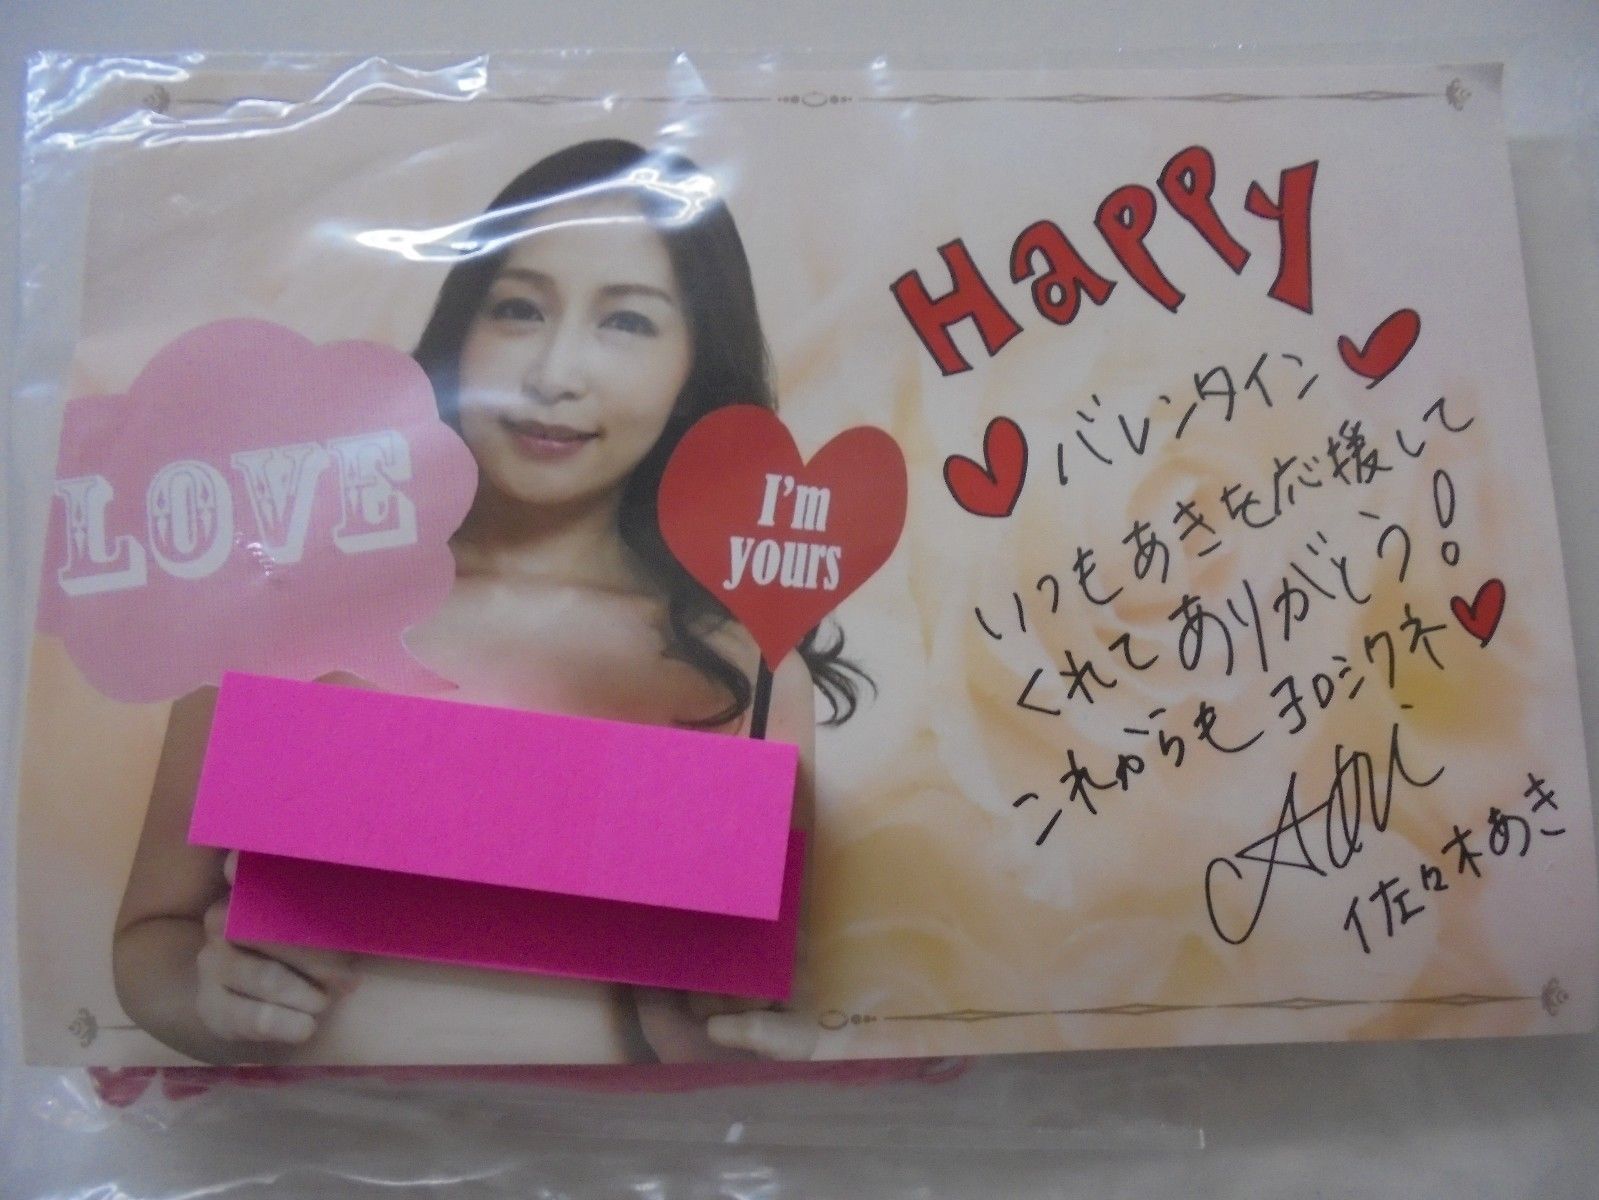 LOVE
I'm
yours
Happy
バレンタイン
いつもあきを応援して
くれてありがとう!
これからもヨロシクネ
Aki
佐々木あき